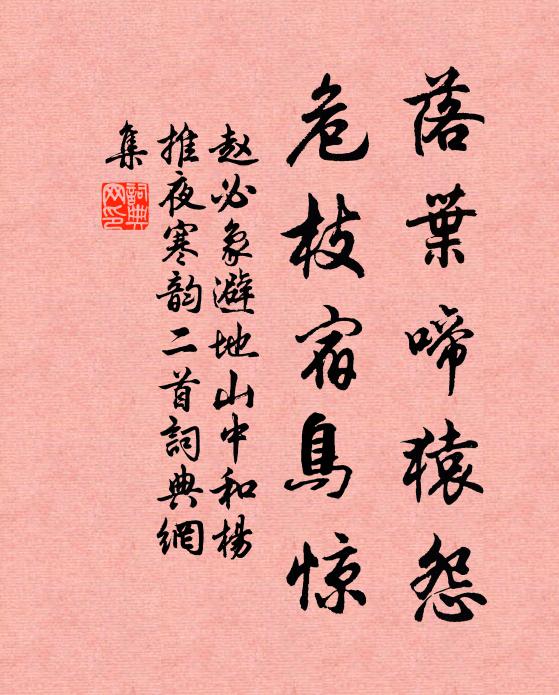 落葉啼猿怨
危枝宿鳥惊
赵必象避地山中和楊
推夜寒韵二首詞典網
集
詞典
网印